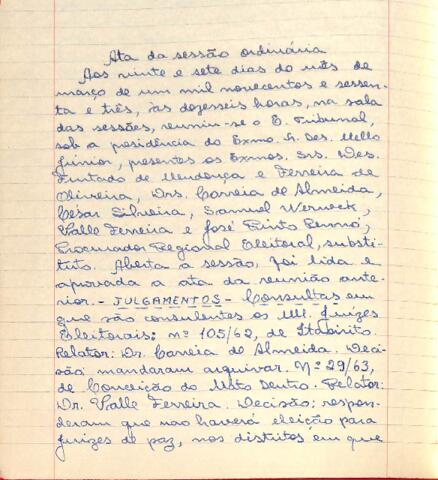 Ata da sessão ordinária
Aos vinte e sete dias do mês de
março de um mil novecentos e sessen-
ta e três, às dezesseis horas, na sala
das sessões, reuniu-se o E. Tribunal,
sob a presidência do Exmo. Sr. Des. Mello
Júnior, presentes os Exmos. Srs. Des.
Furtado de Mendonça e Ferreira de
Oliveira, Drs. Correia de Almeida,
César Silveira, Samuel Werneck,
Valle Ferreira e José Pinto Rennó,
Procurador Regional Eleitoral, substi-
tuto. Aberta a sessão, foi lida e
aprovada a ata da reunião ante-
rior. - JULGAMENTOS - Consultas em
que são consulentes os MM. Juízes
Eleitorais: nº 105/62, de Itabirito.
Relator: Dr. Correia de Almeida. Deci-
são: mandaram arquivar. Nº 29/63,
de Conceição do Mato Dentro. Relator:
Dr. Valle Ferreira. Decisão: respon-
deram que não haverá eleição para
juizes de paz, nos distritos em que